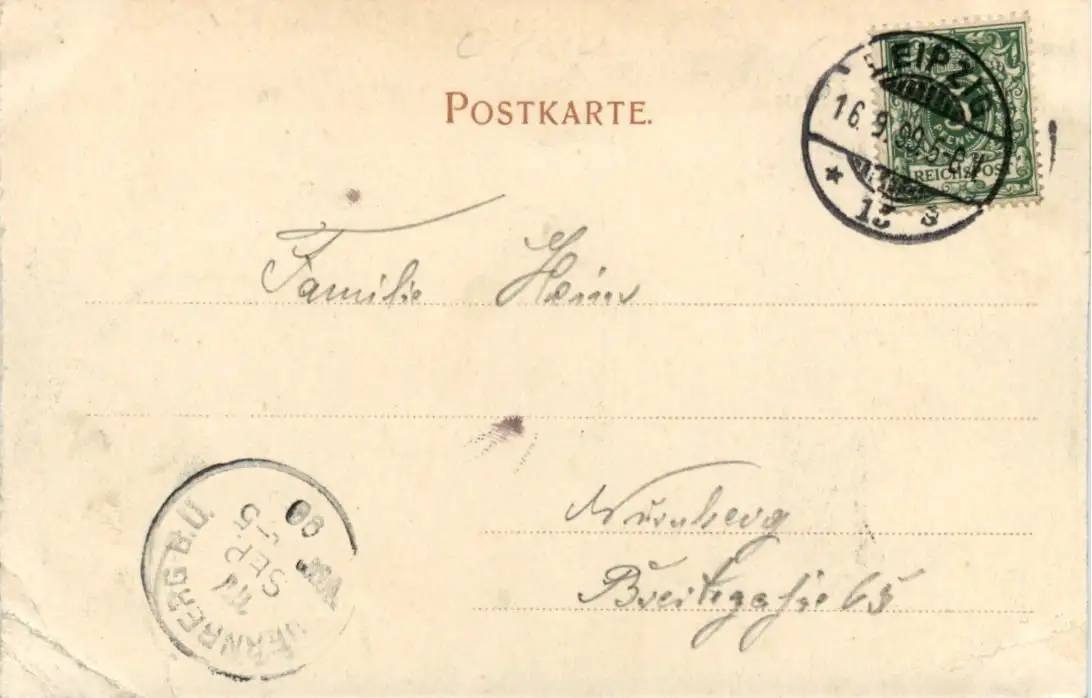 POSTKARTE.
LEIPZIG
16.9.99.5-6 N
* 13 a
PFENNIG
REICHSPOST
Familie Heim
Nürnberg
Breitegasse 65
NUERNBERG B.U.
SEP